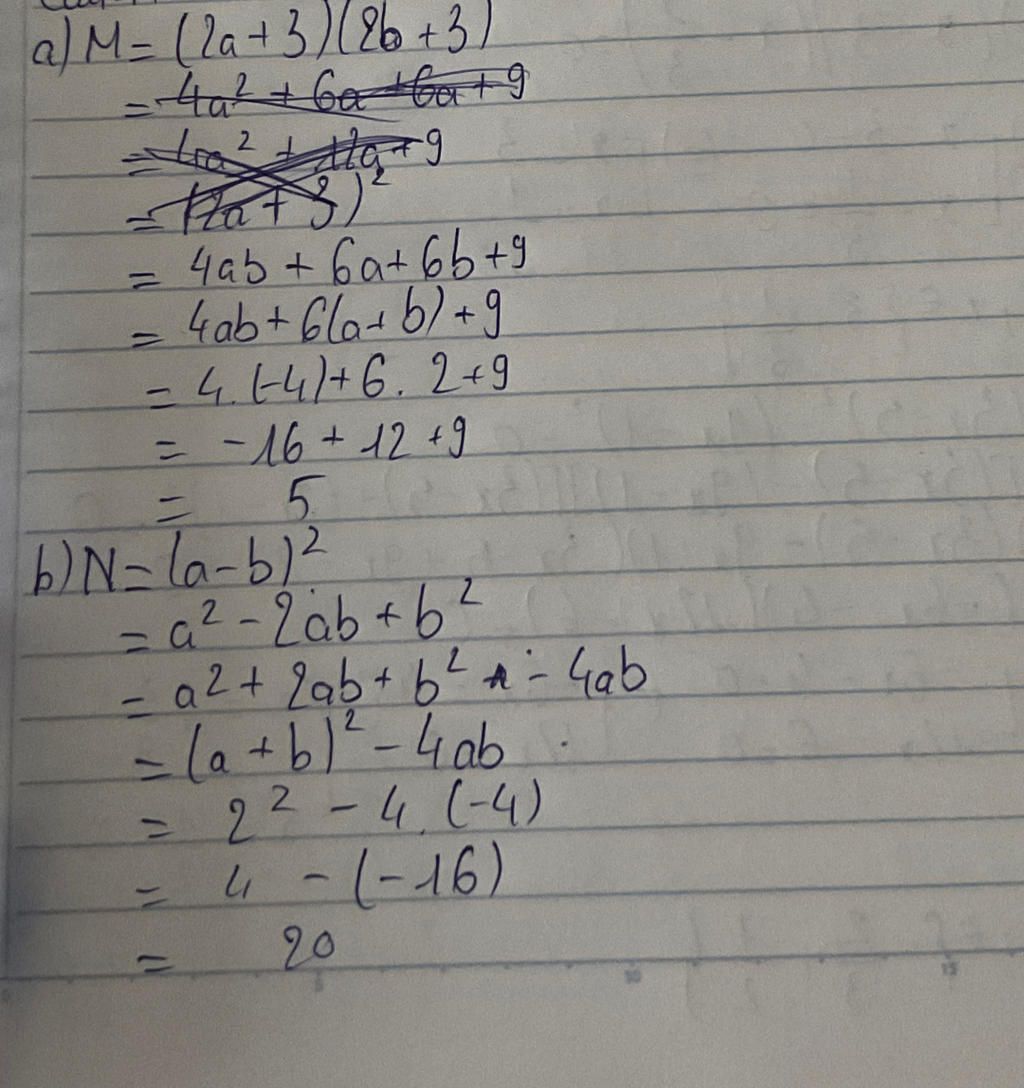 a) M = (2a + 3)(2b + 3)
= 4a² + 6a + 6a + 9
= 4a² + 12a + 9
= (2a + 3)²
= 4ab + 6a + 6b + 9
= 4ab + 6(a + b) + 9
= 4.(-4) + 6. 2 + 9
= -16 + 12 + 9
= 5
b) N = (a - b)²
= a² - 2ab + b²
= a² + 2ab + b² - 4ab
= (a + b)² - 4ab
= 2² - 4.(-4)
= 4 - (-16)
= 20
5 10 15